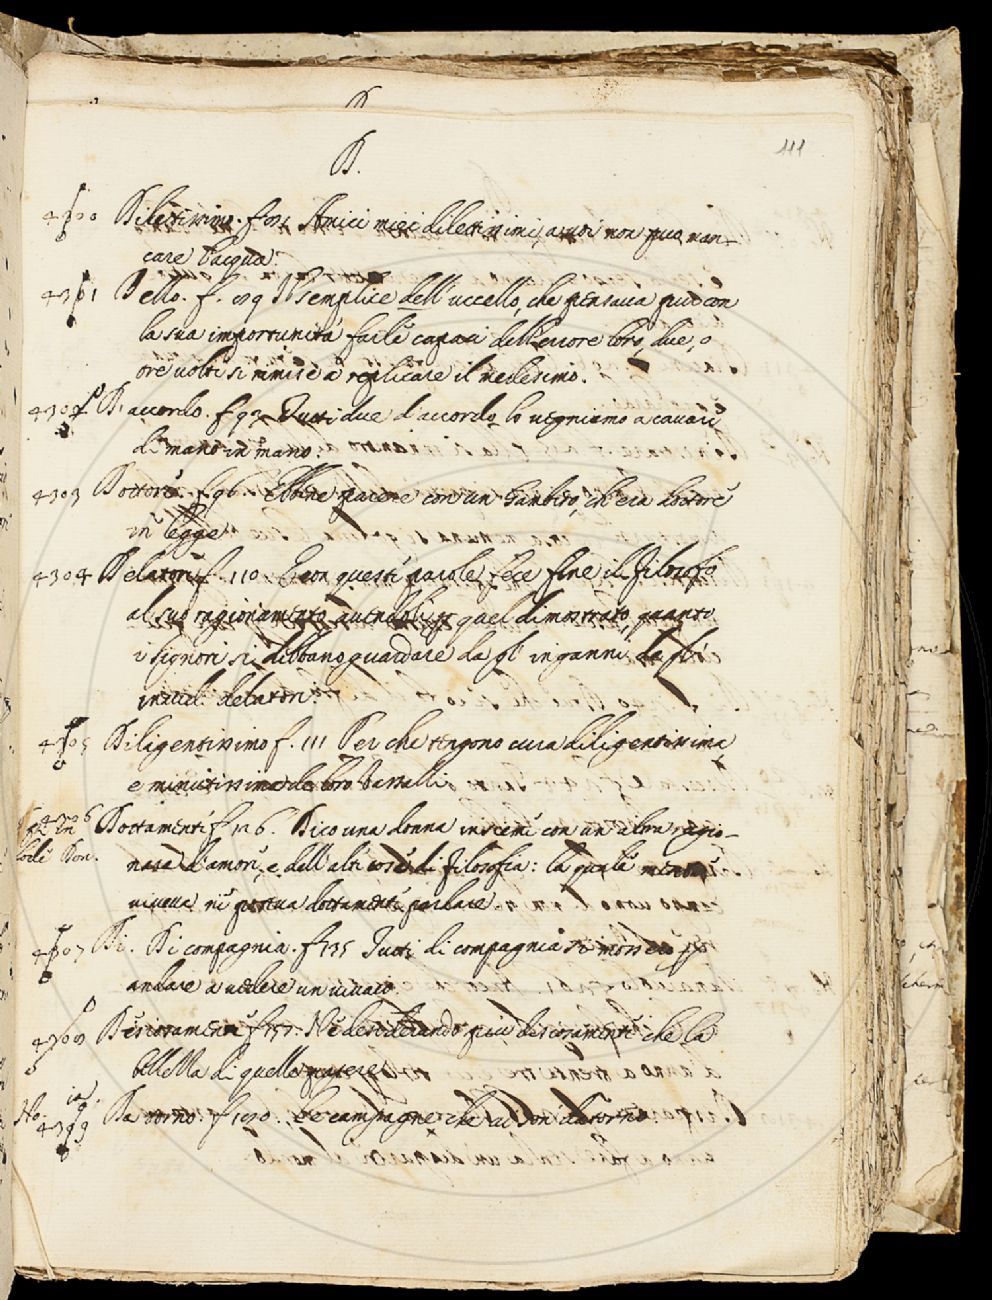 D.
D.
111
4300 Diletissimo. f. 91 Amici miei diletissimi, a voi non può man-
care l'acqua.
4301 Dello. f. 59 Il semplice dell'uccello, che pensava pur con
la sua importunità farle capaci dell'errore loro, due, o
tre volte si mise à replicare il medesimo.
4302 D'accordo. f. 93 Tutti due d'accordo lo vegniamo a cavare
di mano in mano.
4303 Dottore. f. 96. Ebbene parole con un, ch'era dottore
in legge.
4304 Delatori f. 110. E con queste parole fece fine il Filosofo
al suo ragionamento, quel dimostrato, quanto
i signori si debbano guardare da gl'inganni da gli
delatori.
4305 Diligentissimo f. 111 Per che tengono cura diligentissima
e minutissima de loro Vassalli.
4306 Dottamente f. 126. Dico una donna insieme con un altra ragio-
nare d'amore, e dell'alte cose di Filosofia: la quale mentre
viveva dottamente parlare.
4307 Di. Di compagnia. f. 135 Tutti di compagnia si mossero per
andare a vedere un vivaio.
f. 157. desiderando più che la
bellezza di quello
Da torno. f. Le campagne che ci son datorno.